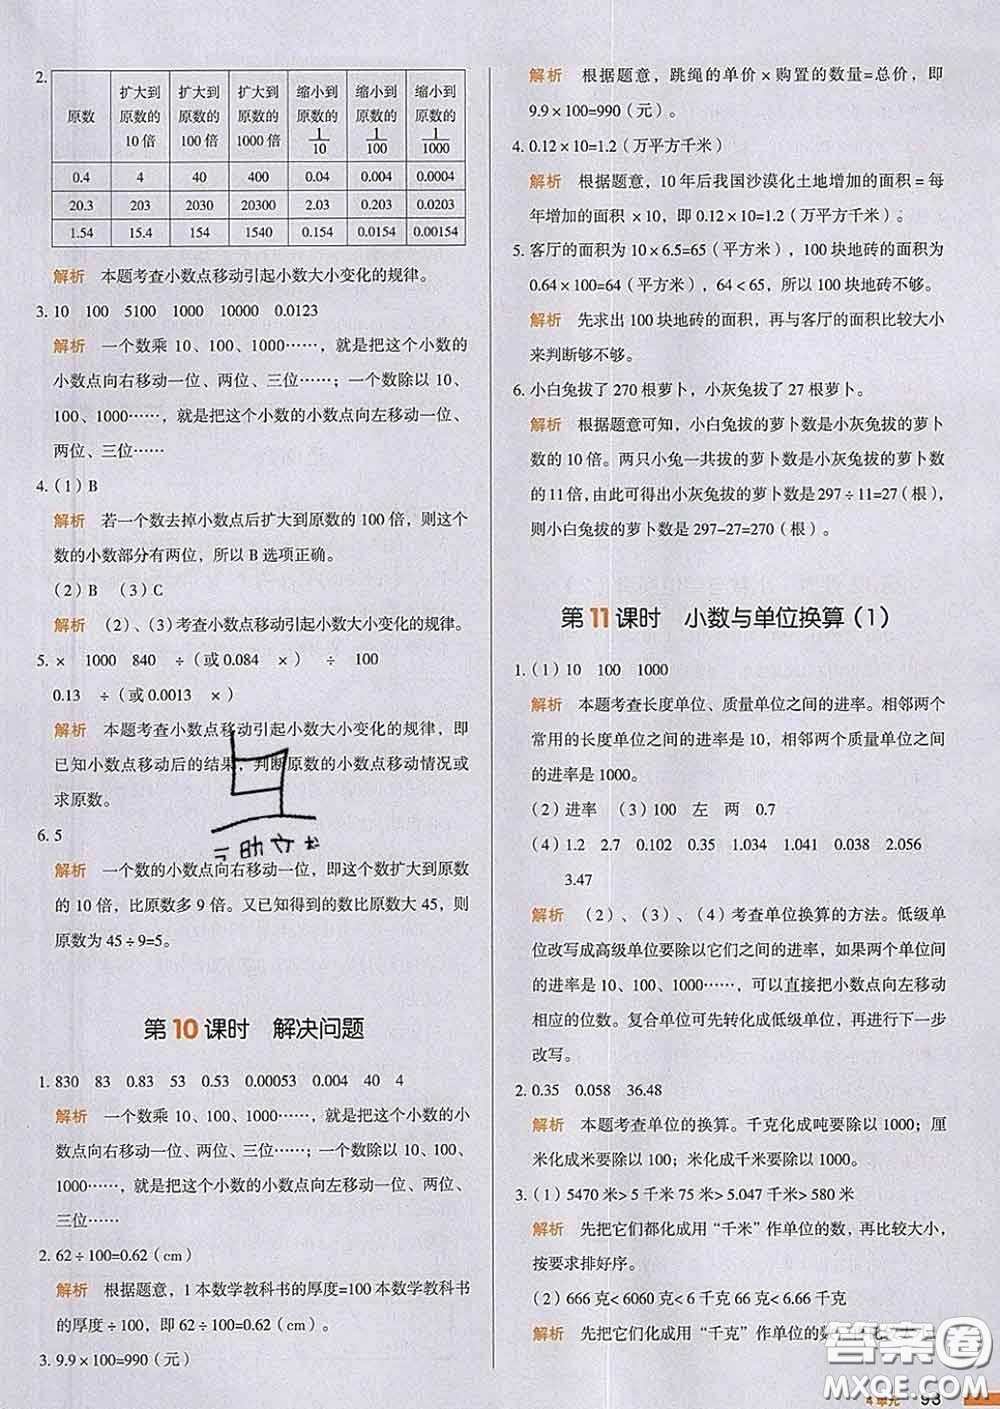 2.
原数 扩大到原数的10倍 扩大到原数的100倍 扩大到原数的1000倍 缩小到原数的1/10 缩小到原数的1/100 缩小到原数的1/1000
0.4 4 40 400 0.04 0.004 0.0004
20.3 203 2030 20300 2.03 0.203 0.0203
1.54 15.4 154 1540 0.154 0.0154 0.00154
解析 本题考查小数点移动引起小数大小变化的规律。
3. 10 100 5100 1000 10000 0.0123
解析 一个数乘 10、100、1000……，就是把这个小数的
小数点向右移动一位、两位、三位……；一个数除以 10、
100、1000……，就是把这个小数的小数点向左移动一位、
两位、三位……
4.（1）B
解析 若一个数去掉小数点后扩大到原数的 100 倍，则这个
数的小数部分有两位，所以 B 选项正确。
（2）B （3）C
解析 （2）、（3）考查小数点移动引起小数大小变化的规律。
5. × 1000 840 ÷（或 0.084 ×） ÷ 100
0.13 ÷（或 0.0013 ×）
解析 本题考查小数点移动引起小数大小变化的规律，即
已知小数点移动后的结果，判断原数的小数点移动情况或
求原数。
6. 5
解析 一个数的小数点向右移动一位，即这个数扩大到原数
的 10 倍，比原数多 9 倍。又已知得到的数比原数大 45，则
原数为 45÷9=5。
第 10 课时 解决问题
1. 830 83 0.83 53 0.53 0.00053 0.004 40 4
解析 一个数乘 10、100、1000……，就是把这个小数的小
数点向右移动一位、两位、三位……；一个数除以 10、100、
1000……，就是把这个小数的小数点向左移动一位、两位、
三位……
2. 62÷100=0.62（cm）
解析 根据题意，1 本数学教科书的厚度=100 本数学教科书
的厚度÷100，即 62÷100=0.62（cm）。
3. 9.9×100=990（元）
解析 根据题意，跳绳的单价×购置的数量=总价，即
9.9×100=990（元）。
4. 0.12×10=1.2（万平方千米）
解析 根据题意，10 年后我国沙漠化土地增加的面积=每
年增加的面积×10，即 0.12×10=1.2（万平方千米）。
5. 客厅的面积为 10×6.5=65（平方米），100 块地砖的面积为
0.64×100=64（平方米），64＜65，所以 100 块地砖不够。
解析 先求出 100 块地砖的面积，再与客厅的面积比较大小
来判断够不够。
6. 小白兔拔了 270 根萝卜，小灰兔拔了 27 根萝卜。
解析 根据题意可知，小白兔拔的萝卜数是小灰兔拔的萝卜
数的 10 倍。两只小兔一共拔的萝卜数是小灰兔拔的萝卜数
的 11 倍，由此可得出小灰兔拔的萝卜数是 297÷11=27（根），
则小白兔拔的萝卜数是 297-27=270（根）。
第 11 课时 小数与单位换算（1）
1.（1）10 100 1000
解析 本题考查长度单位、质量单位之间的进率。相邻两个
常用的长度单位之间的进率是 10，相邻两个质量单位之间
的进率是 1000。
（2）进率 （3）100 左 两 0.7
（4）1.2 2.7 0.102 0.35 1.034 1.041 0.038 2.056
3.47
解析 （2）、（3）、（4）考查单位换算的方法。低级单
位改写成高级单位要除以它们之间的进率，如果两个单位间
的进率是 10、100、1000……，可以直接把小数点向左移动
相应的位数。复合单位可先转化成低级单位，再进行下一步
改写。
2. 0.35 0.058 36.48
解析 本题考查单位的换算。千克化成吨要除以 1000；厘
米化成米要除以 100；米化成千米要除以 1000。
3.（1）5470 米>5 千米 75 米>5.047 千米>580 米
解析 先把它们都化成用“千米”作单位的数，再比较大小，
按要求排好序。
（2）666 克<6060 克<6 千克 66 克<6.66 千克
解析 先把它们化成用“千克”作单位的数
4 单元 93
答案圈
MXQE.COM